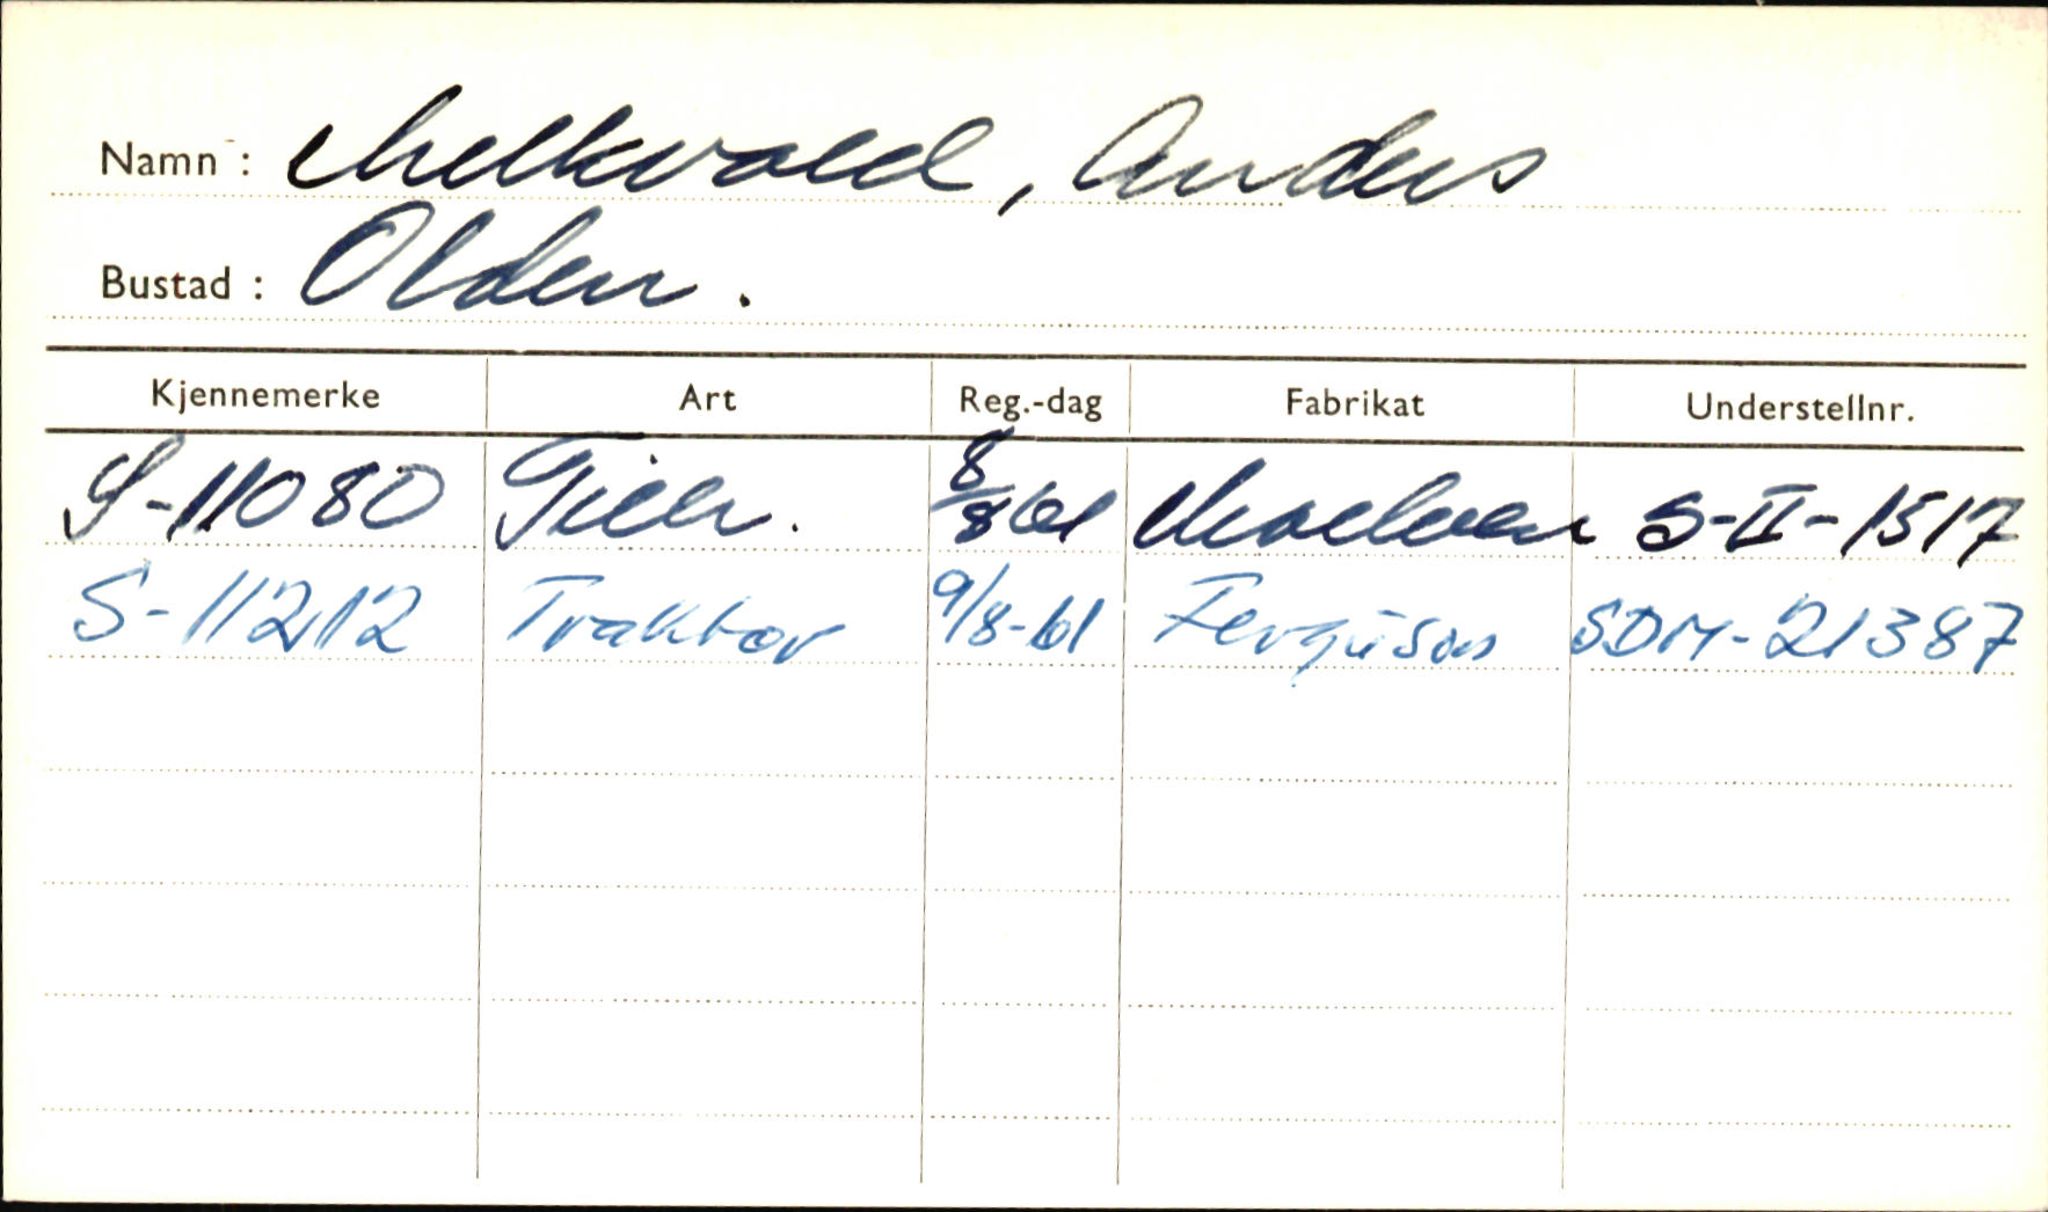 Namn : Melkvoll, Anders
Bustad : Olden.
Kjennemerke Art Reg.-dag Fabrikat Understellnr.
S-11080 Tilh. 8/8 61 Moelven S-II-1517
S-11212 Traktor 9/8-61 Ferguson SDM-21387